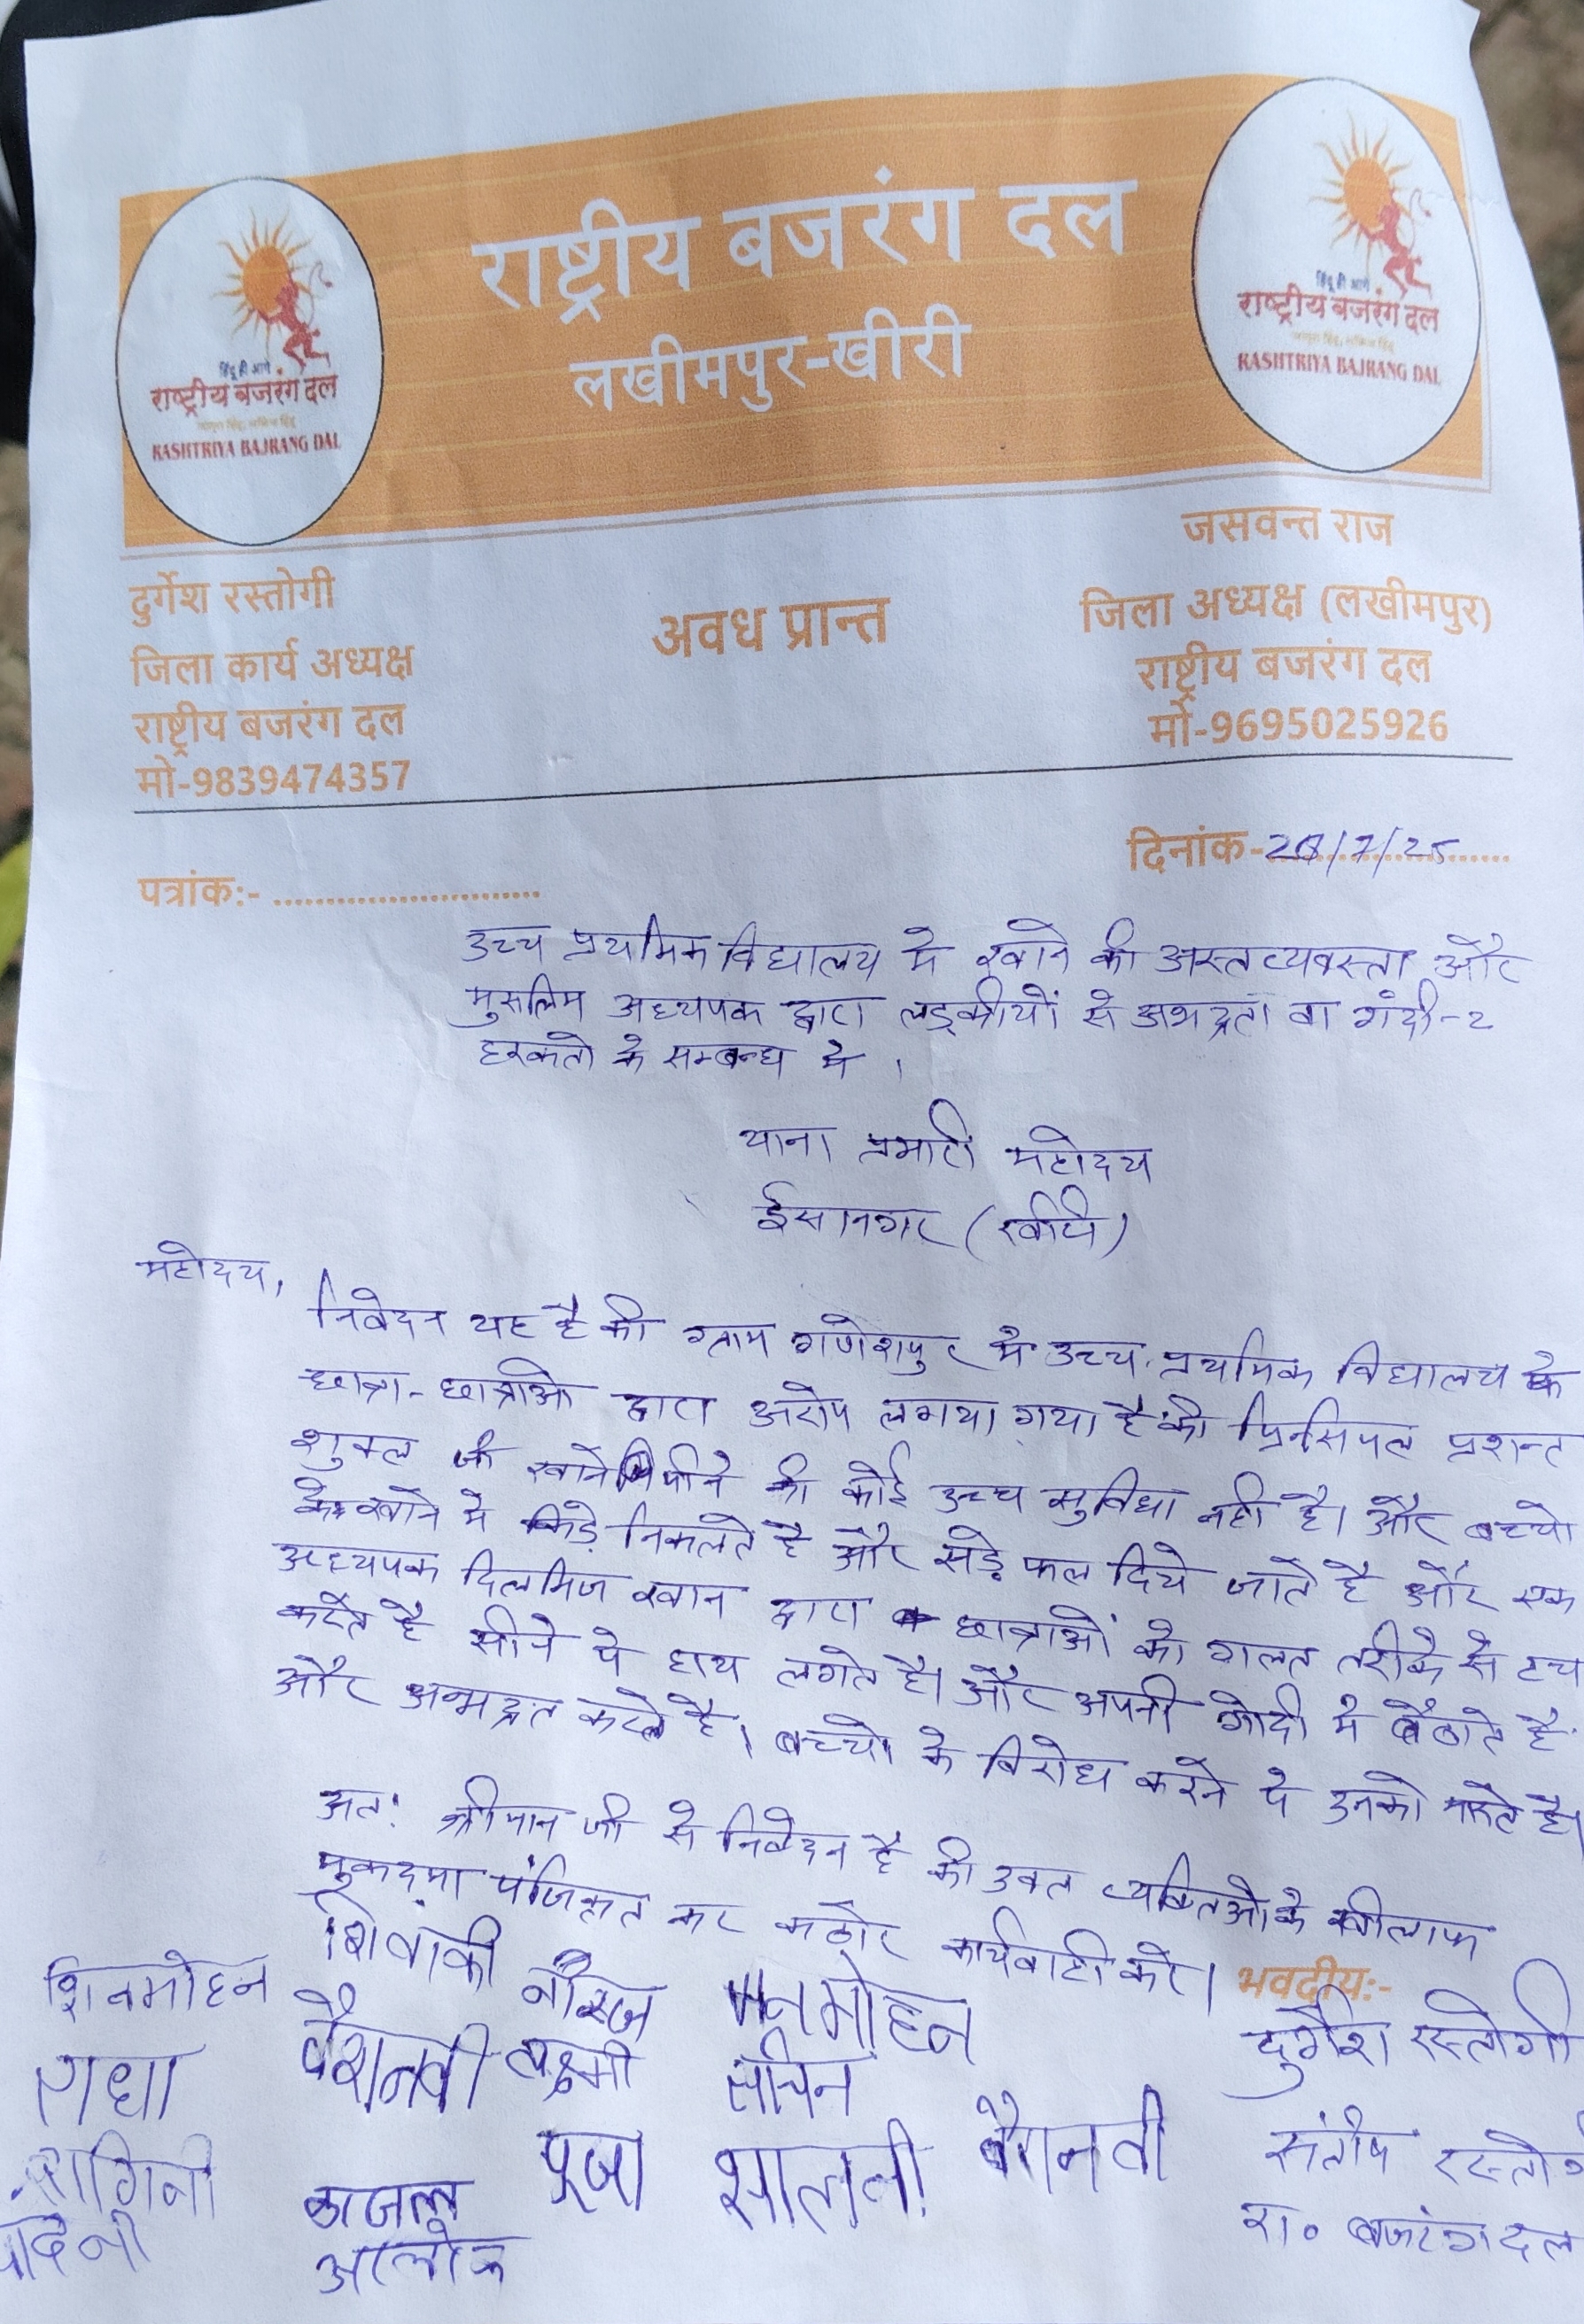 राष्ट्रीय बजरंग दल
लखीमपुर-खीरी
हिंदू ही आगे
राष्ट्रीय बजरंग दल
RASHTRIYA BAJRANG DAL
हिंदू ही आगे
राष्ट्रीय बजरंग दल
RASHTRIYA BAJRANG DAL
दुर्गेश रस्तोगी
जिला कार्य अध्यक्ष
राष्ट्रीय बजरंग दल
मो-9839474357
अवध प्रान्त
जसवन्त राज
जिला अध्यक्ष (लखीमपुर)
राष्ट्रीय बजरंग दल
मो-9695025926
पत्रांक:- ............................
दिनांक-28/7/25
उच्च प्रथमिक विद्यालय मे खाने की अस्त व्यवस्ता और
मुसलिम अध्यपक द्वारा लड्कीयों से अभद्रता वा गंदी-2
हरकतो के सम्बन्ध मे ।
थाना प्रभारी महोदय
ईसानगर (खीरी)
महोदय,
निवेदन यह है की ग्राम गणेशपुर मे उच्च प्रथमिक विद्यालय के
छात्रा-छात्राओ द्वारा अरोप लगया गया है की प्रिनसिपल प्रशान्ट
शुक्ल जी खाने पीने की कोई उच्च सुविधा नही है। और बच्चो
के खाने मे किड़े निकलते है और सड़े फल दिये जाते है और एक
अध्यपक दिलमिज खान द्वारा छात्राओं को गलत तरीके से टच
करते है सीने पे हाथ लगते है। और अपनी गोदी मे बैठाते है
और अन्भद्रत करते है। बच्चो के विरोध करने पे उनको मारते है।
अत: श्रीमान जी से निवेदन है की उक्त व्यक्तिओ के खीलाफ
मुकदमा पंजिकृत कर कठोर कार्यवाही करे।
भवदीय:-
शिवमोहन शिवांकी नौरज मनमोहन दुर्गेश रस्तोगी
राधा वैशनवी लक्ष्मी सचिन
रागिनी पूजा वैशनवी संतोष
काजल रा० बजरंगदल
आलोक